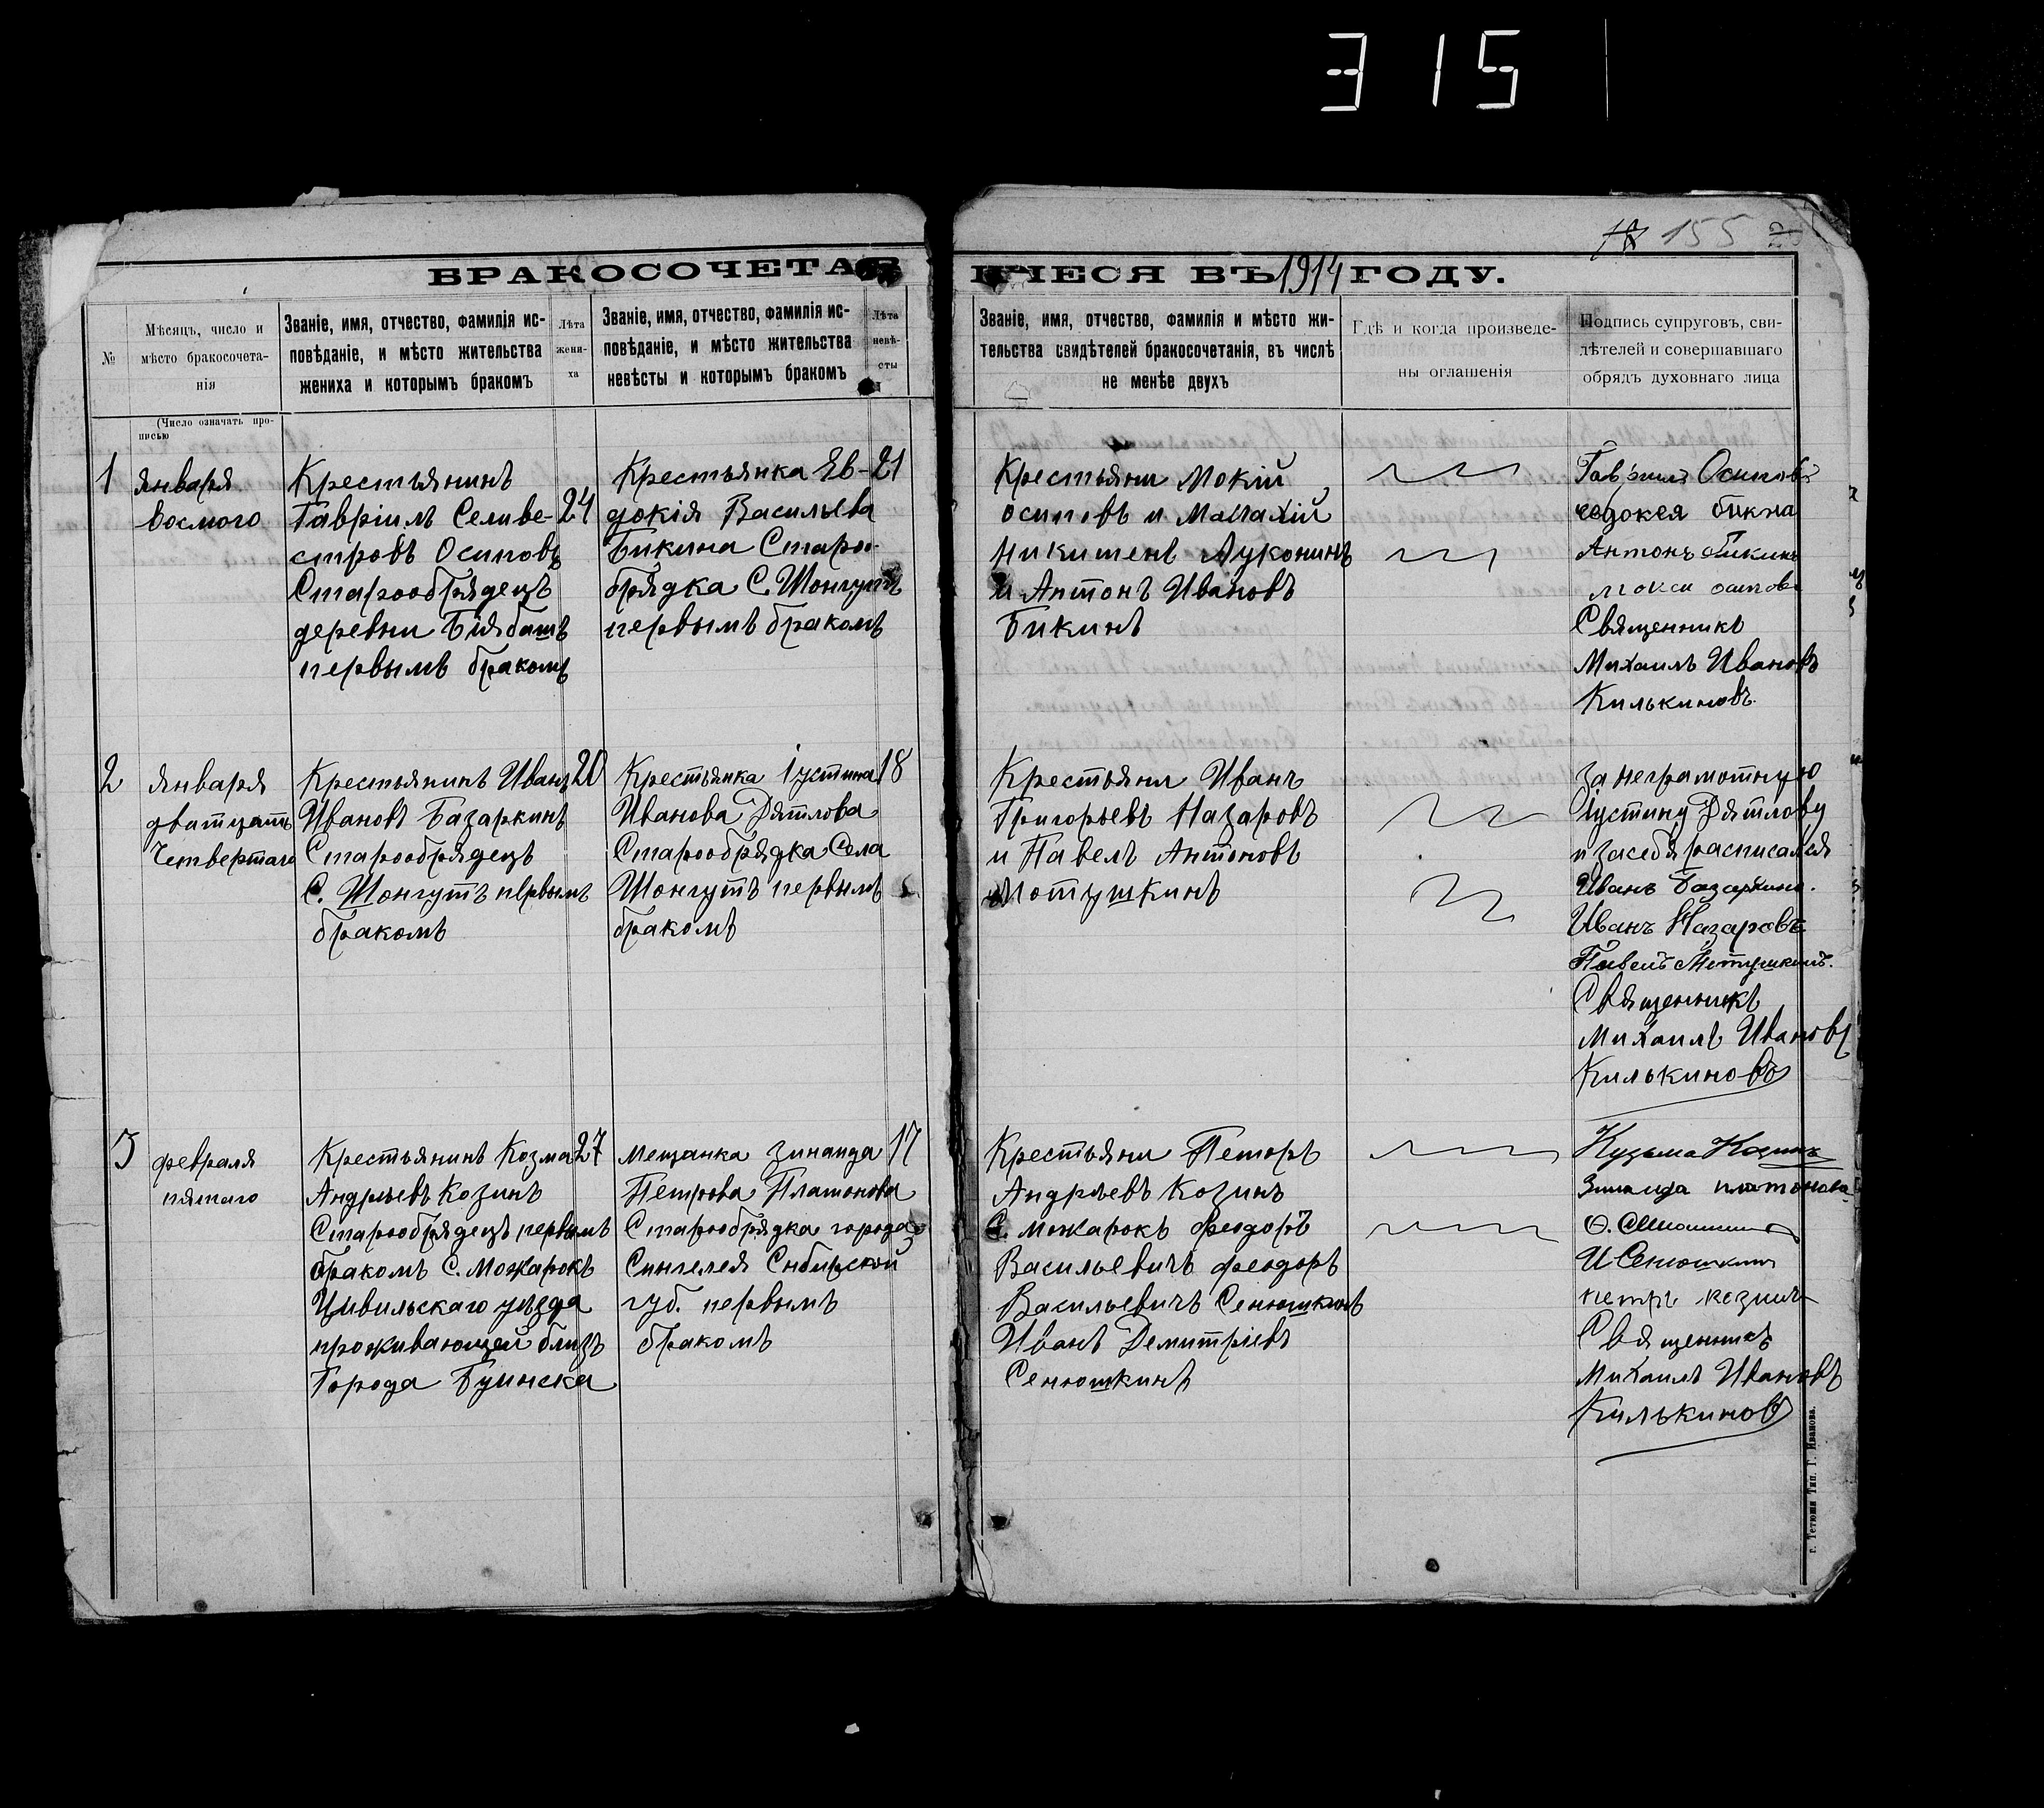 315
155
БРАКОСОЧЕТАВ
ШІЕСЯ ВЪ 1914 ГОДУ.
№
Мѣсяцъ, число и
мѣсто бракосочета-
нія
(Число означать про-
писью
Званіе, имя, отчество, фамилія ис-
повѣданіе, и мѣсто жительства
жениха и которымъ бракомъ
Лѣта
жени-
ха
Званіе, имя, отчество, фамилія ис-
повѣданіе, и мѣсто жительства
невѣсты и которымъ бракомъ
Лѣта
невѣ-
сты
Званіе, имя, отчество, фамилія и мѣсто жи-
тельства свидѣтелей бракосочетанія, въ числѣ
не менѣе двухъ
Гдѣ и когда произведе-
ны оглашенія
Подпись супруговъ, сви-
дѣтелей и совершавшаго
обрядъ духовнаго лица
1
января
восмого
Крестьянинъ
Гавріилъ Селиве-
стровъ Осиповъ
Старообрядецъ
деревни Біябашъ
первымъ бракомъ
24
Крестьянка Ев-
докія Васильева
Бикина Старо-
брядка С. Шонгутъ
первымъ бракомъ
21
Крестьяни Мокій
осиповъ и Малахій
Никитенъ Луконинъ
и Антонъ Ивановъ
Бикинъ
Гавриілъ Осиповъ
Антонъ бикинъ
мокеи осиповъ
Священникъ
Михаилъ Ивановъ
Килькиновъ
2
января
дватцать
Четвертаго
Крестьянинъ Иванъ
Ивановъ Базаркинъ
Старообрядецъ
С. Шонгутъ первымъ
бракомъ
20
Крестьянка Іустина
Иванова Дятлова
Старообрядка Села
Шонгутъ первымъ
бракомъ
18
Крестьяни Иванъ
Григорьевъ Назаровъ
и Павелъ Антоновъ
Мотушкинъ
за неграмотную
Іустину Дятлову
и засебя расписался
Иванъ Базаркинъ.
Иванъ Назаровъ
Павелъ Мотушкинъ.
Священникъ
Михаилъ Ивановъ
Килькиновъ
3
февраля
пятаго
Крестьянинъ Козма
Андрѣевъ Козинъ
Старообрядецъ первымъ
бракомъ С. Можарокъ
Цивильскаго уѣзда
проживающей близъ
Города Буинска
27
мещанка Зинаида
Петрова Платонова
Старообрядка города
Сингелея Сибирской
губ. первымъ
бракомъ
17
Крестьяни Петоръ
Андрѣевъ Козинъ
С. можарокъ феодоръ
Васильевичъ феодоръ
Васильевичъ Сенюшкинъ
Иванъ Демитріевъ
Сенюшкинъ
Кузьма Козинъ
Зинаида платонова
И Сенюшкинъ
петръ козинъ
Священникъ
Михаилъ Ивановъ
Килькиновъ
г. Тетюши Тип. Г. Иванова.